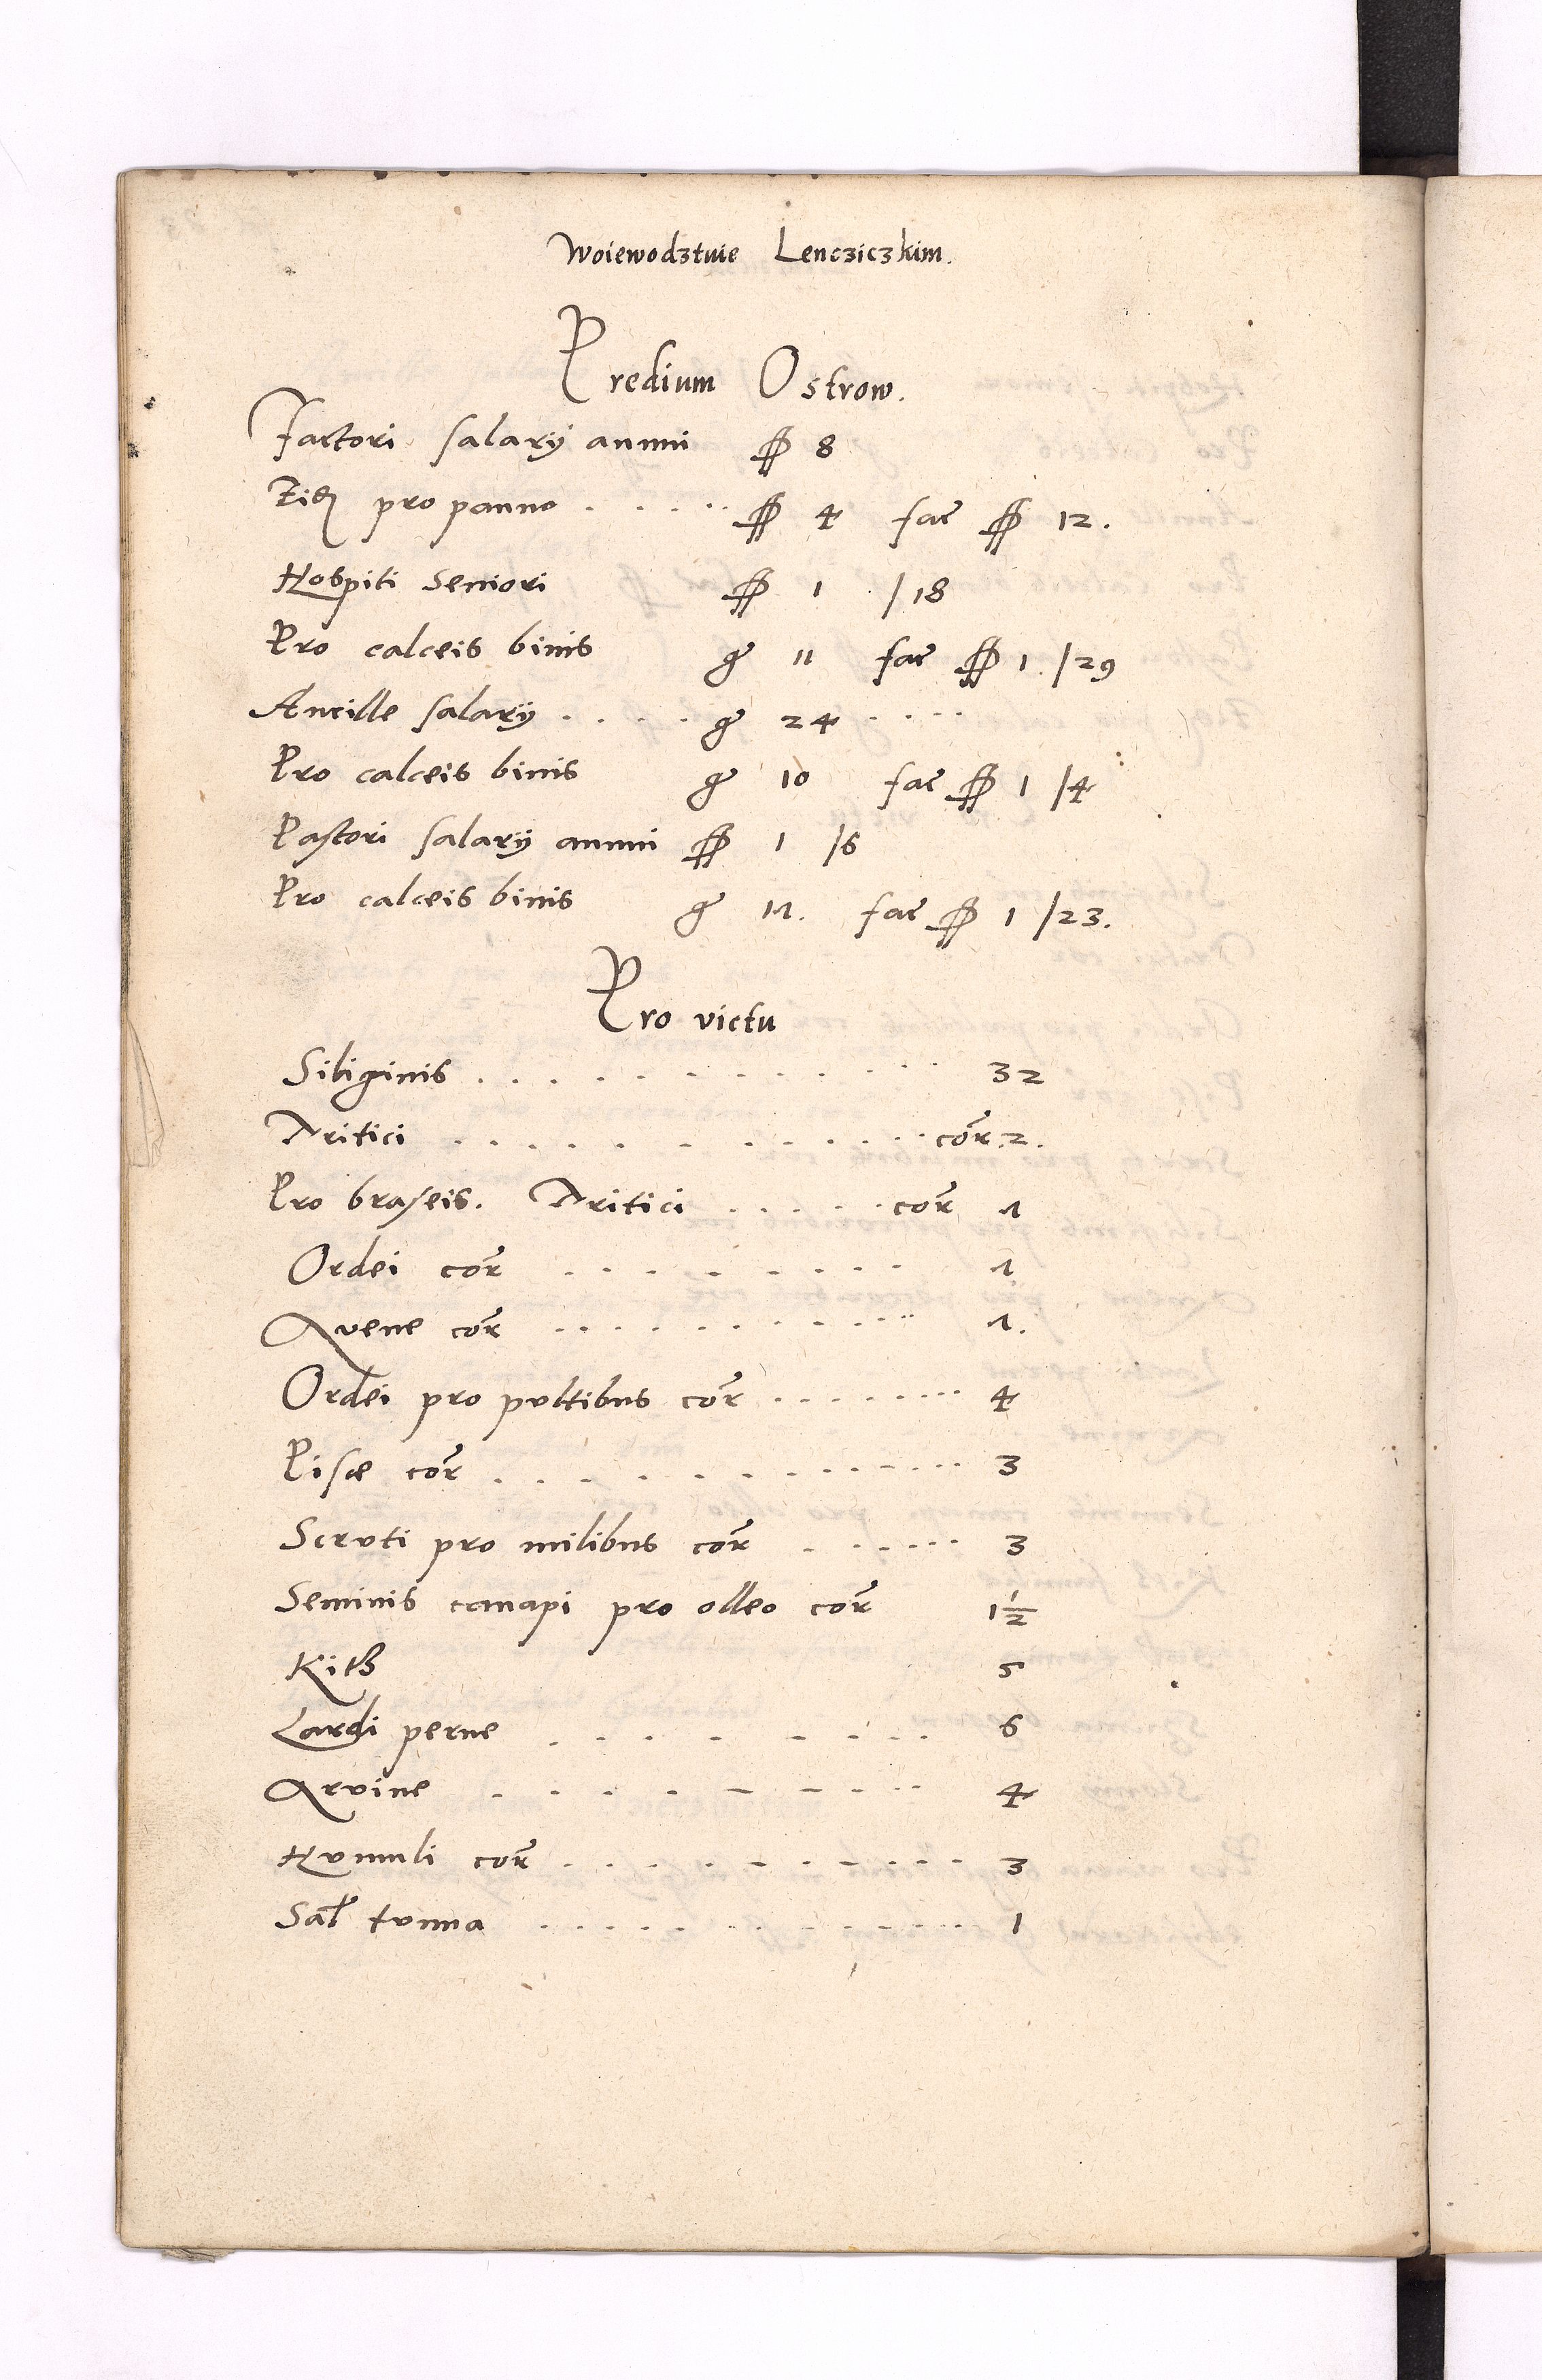 Woiewodztwie Lencziczkim.
Predium Ostrow.
Factori salarÿ annui ₣ 8
Eidem pro panno . . . . . . 4 fac 12.
Hospiti Seniori 1 /18
Pro calceis binis g 11 fac 1 /29
Ancille salarÿ . . . . . g 24 . . . .
Pro calceis binis g 10 fac 1 /4
Pastori salarÿ annui 1 /6
Pro calceis binis g 17. fac 1 /23.
Pro victu
Siliginis . . . . . . . . . . . . 32
Tritici . . . . . . . . . . . . cor 2.
Pro braseis. Tritici . . . . . . cor 1
Ordei cor . . . . . . . . . 1
Avene cor . . . . . . . . . . 1.
Ordei pro pvltibus cor . . . . . . . . 4
Pisae cor . . . . . . . . . . . 3
Scrvti pro milibus cor . . . . . . 3
Seminis canapi pro olleo cor 1½
Kith 5
Lardi perne . . . . . . . . 6
Arvine . . . . . . . . . 4
Hvmuli cor . . . . . . . . . . 3
Sal tvnna . . . . . . . . . . . 1